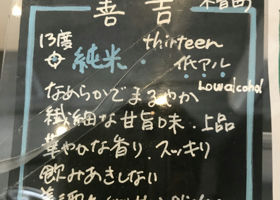 善吉
13度 thirteen
中 純米・低アル
Low alcohol
なめらかでまろやか
繊細な甘旨味・上品
華やかな香り、スッキリ
飲みあきしない